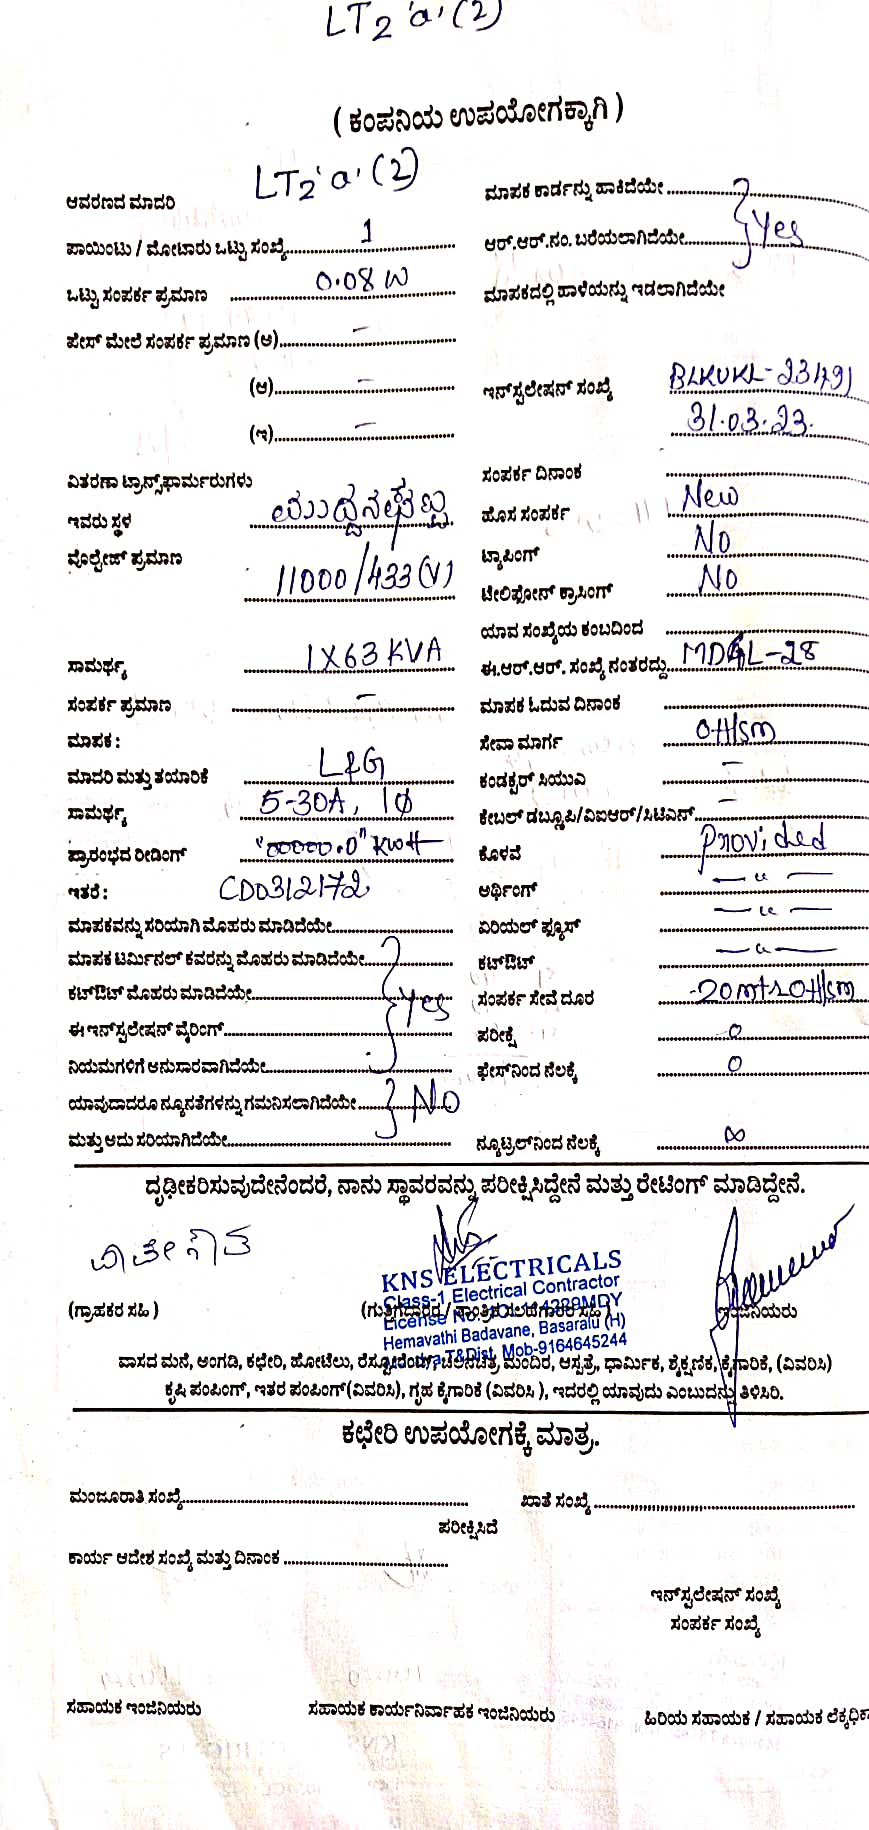 LT2 'a' (2)
( ಕಂಪನಿಯ ಉಪಯೋಗಕ್ಕಾಗಿ )
ಆವರಣದ ಮಾದರಿ LT2 'a' (2)
ಪಾಯಿಂಟು / ಮೋಟಾರು ಒಟ್ಟು ಸಂಖ್ಯೆ 1
ಒಟ್ಟು ಸಂಪರ್ಕ ಪ್ರಮಾಣ 0.08 W
ಪೇಸ್ ಮೇಲೆ ಸಂಪರ್ಕ ಪ್ರಮಾಣ (ಅ) –
(ಆ) –
(ಇ) –
ವಿತರಣಾ ಟ್ರಾನ್ಸ್‌ಫಾರ್ಮರುಗಳು
ಇವರು ಸ್ಥಳ
ವೊಲ್ಟೇಜ್ ಪ್ರಮಾಣ
11000/433 (V)
ಸಾಮರ್ಥ್ಯ 1X63 KVA
ಸಂಪರ್ಕ ಪ್ರಮಾಣ –
ಮಾಪಕ :
ಮಾದರಿ ಮತ್ತು ತಯಾರಿಕೆ L&G
ಸಾಮರ್ಥ್ಯ 5-30A, 1ϕ
ಪ್ರಾರಂಭದ ರೀಡಿಂಗ್ "00000.0" KWH
ಇತರೆ : CDD312172
ಮಾಪಕವನ್ನು ಸರಿಯಾಗಿ ಮೊಹರು ಮಾಡಿದೆಯೇ
ಮಾಪಕ ಟರ್ಮಿನಲ್ ಕವರನ್ನು ಮೊಹರು ಮಾಡಿದೆಯೇ
ಕಟ್‌ಔಟ್ ಮೊಹರು ಮಾಡಿದೆಯೇ Yes
ಈ ಇನ್‌ಸ್ಟಲೇಷನ್ ವೈರಿಂಗ್
ನಿಯಮಗಳಿಗೆ ಅನುಸಾರವಾಗಿದೆಯೇ
ಯಾವುದಾದರೂ ನ್ಯೂನತೆಗಳನ್ನು ಗಮನಿಸಲಾಗಿದೆಯೇ No
ಮತ್ತು ಅದು ಸರಿಯಾಗಿದೆಯೇ
ಮಾಪಕ ಕಾರ್ಡನ್ನು ಹಾಕಿದೆಯೇ
ಆರ್.ಆರ್.ನಂ. ಬರೆಯಲಾಗಿದೆಯೇ Yes
ಮಾಪಕದಲ್ಲಿ ಹಾಳೆಯನ್ನು ಇಡಲಾಗಿದೆಯೇ
ಇನ್‌ಸ್ಟಲೇಷನ್ ಸಂಖ್ಯೆ BLKUKL-23491
31.03.23.
ಸಂಪರ್ಕ ದಿನಾಂಕ
ಹೊಸ ಸಂಪರ್ಕ New
ಟ್ಯಾಪಿಂಗ್ No
ಟೇಲಿಫೋನ್ ಕ್ರಾಸಿಂಗ್ No
ಯಾವ ಸಂಖ್ಯೆಯ ಕಂಬದಿಂದ
ಈ.ಆರ್.ಆರ್. ಸಂಖ್ಯೆ ನಂತರದ್ದು MDGL-28
ಮಾಪಕ ಓದುವ ದಿನಾಂಕ
ಸೇವಾ ಮಾರ್ಗ OH/sm
ಕಂಡಕ್ಟರ್ ಸಿಯುವಿ –
ಕೇಬಲ್ ಡಬ್ಲೂಪಿ/ವಿಐಆರ್/ಸಿಟಿಎಸ್ –
ಕೊಳವೆ Provided
ಅರ್ಥಿಂಗ್ — " —
ಏರಿಯಲ್ ಫ್ಯೂಸ್ — " —
ಕಟ್‌ಔಟ್ — " —
ಸಂಪರ್ಕ ಸೇವೆ ದೂರ 20mtr OH/sm
ಪರೀಕ್ಷೆ 0
ಫೇಸ್‌ನಿಂದ ನೆಲಕ್ಕೆ 0
ನ್ಯೂಟ್ರಲ್‌ನಿಂದ ನೆಲಕ್ಕೆ ∞
ದೃಢೀಕರಿಸುವುದೇನೆಂದರೆ, ನಾನು ಸ್ಥಾವರವನ್ನು ಪರೀಕ್ಷಿಸಿದ್ದೇನೆ ಮತ್ತು ರೇಟಿಂಗ್ ಮಾಡಿದ್ದೇನೆ.
KNS ELECTRICALS
Class-1 Electrical Contractor
Hemavathi Badavane, Basaralu (H)
T&Dist. Mob-9164645244
(ಗ್ರಾಹಕರ ಸಹಿ )
ಇಂಜಿನಿಯರು
ವಾಸದ ಮನೆ, ಅಂಗಡಿ, ಕಛೇರಿ, ಹೋಟೆಲು, ರೆಸ್ಟೋರೆಂಟ್, ಚಲನಚಿತ್ರ ಮಂದಿರ, ಆಸ್ಪತ್ರೆ, ಧಾರ್ಮಿಕ, ಶೈಕ್ಷಣಿಕ, ಕೈಗಾರಿಕೆ, (ವಿವರಿಸಿ)
ಕೃಷಿ ಪಂಪಿಂಗ್, ಇತರ ಪಂಪಿಂಗ್(ವಿವರಿಸಿ), ಗೃಹ ಕೈಗಾರಿಕೆ (ವಿವರಿಸಿ ), ಇದರಲ್ಲಿ ಯಾವುದು ಎಂಬುದನ್ನು ತಿಳಿಸಿರಿ.
ಕಛೇರಿ ಉಪಯೋಗಕ್ಕೆ ಮಾತ್ರ.
ಮಂಜೂರಾತಿ ಸಂಖ್ಯೆ ಖಾತೆ ಸಂಖ್ಯೆ
ಪರೀಕ್ಷಿಸಿದೆ
ಕಾರ್ಯ ಆದೇಶ ಸಂಖ್ಯೆ ಮತ್ತು ದಿನಾಂಕ
ಇನ್‌ಸ್ಟಲೇಷನ್ ಸಂಖ್ಯೆ
ಸಂಪರ್ಕ ಸಂಖ್ಯೆ
ಸಹಾಯಕ ಇಂಜಿನಿಯರು ಸಹಾಯಕ ಕಾರ್ಯನಿರ್ವಾಹಕ ಇಂಜಿನಿಯರು ಹಿರಿಯ ಸಹಾಯಕ / ಸಹಾಯಕ ಲೆಕ್ಕಧಿಕಾ